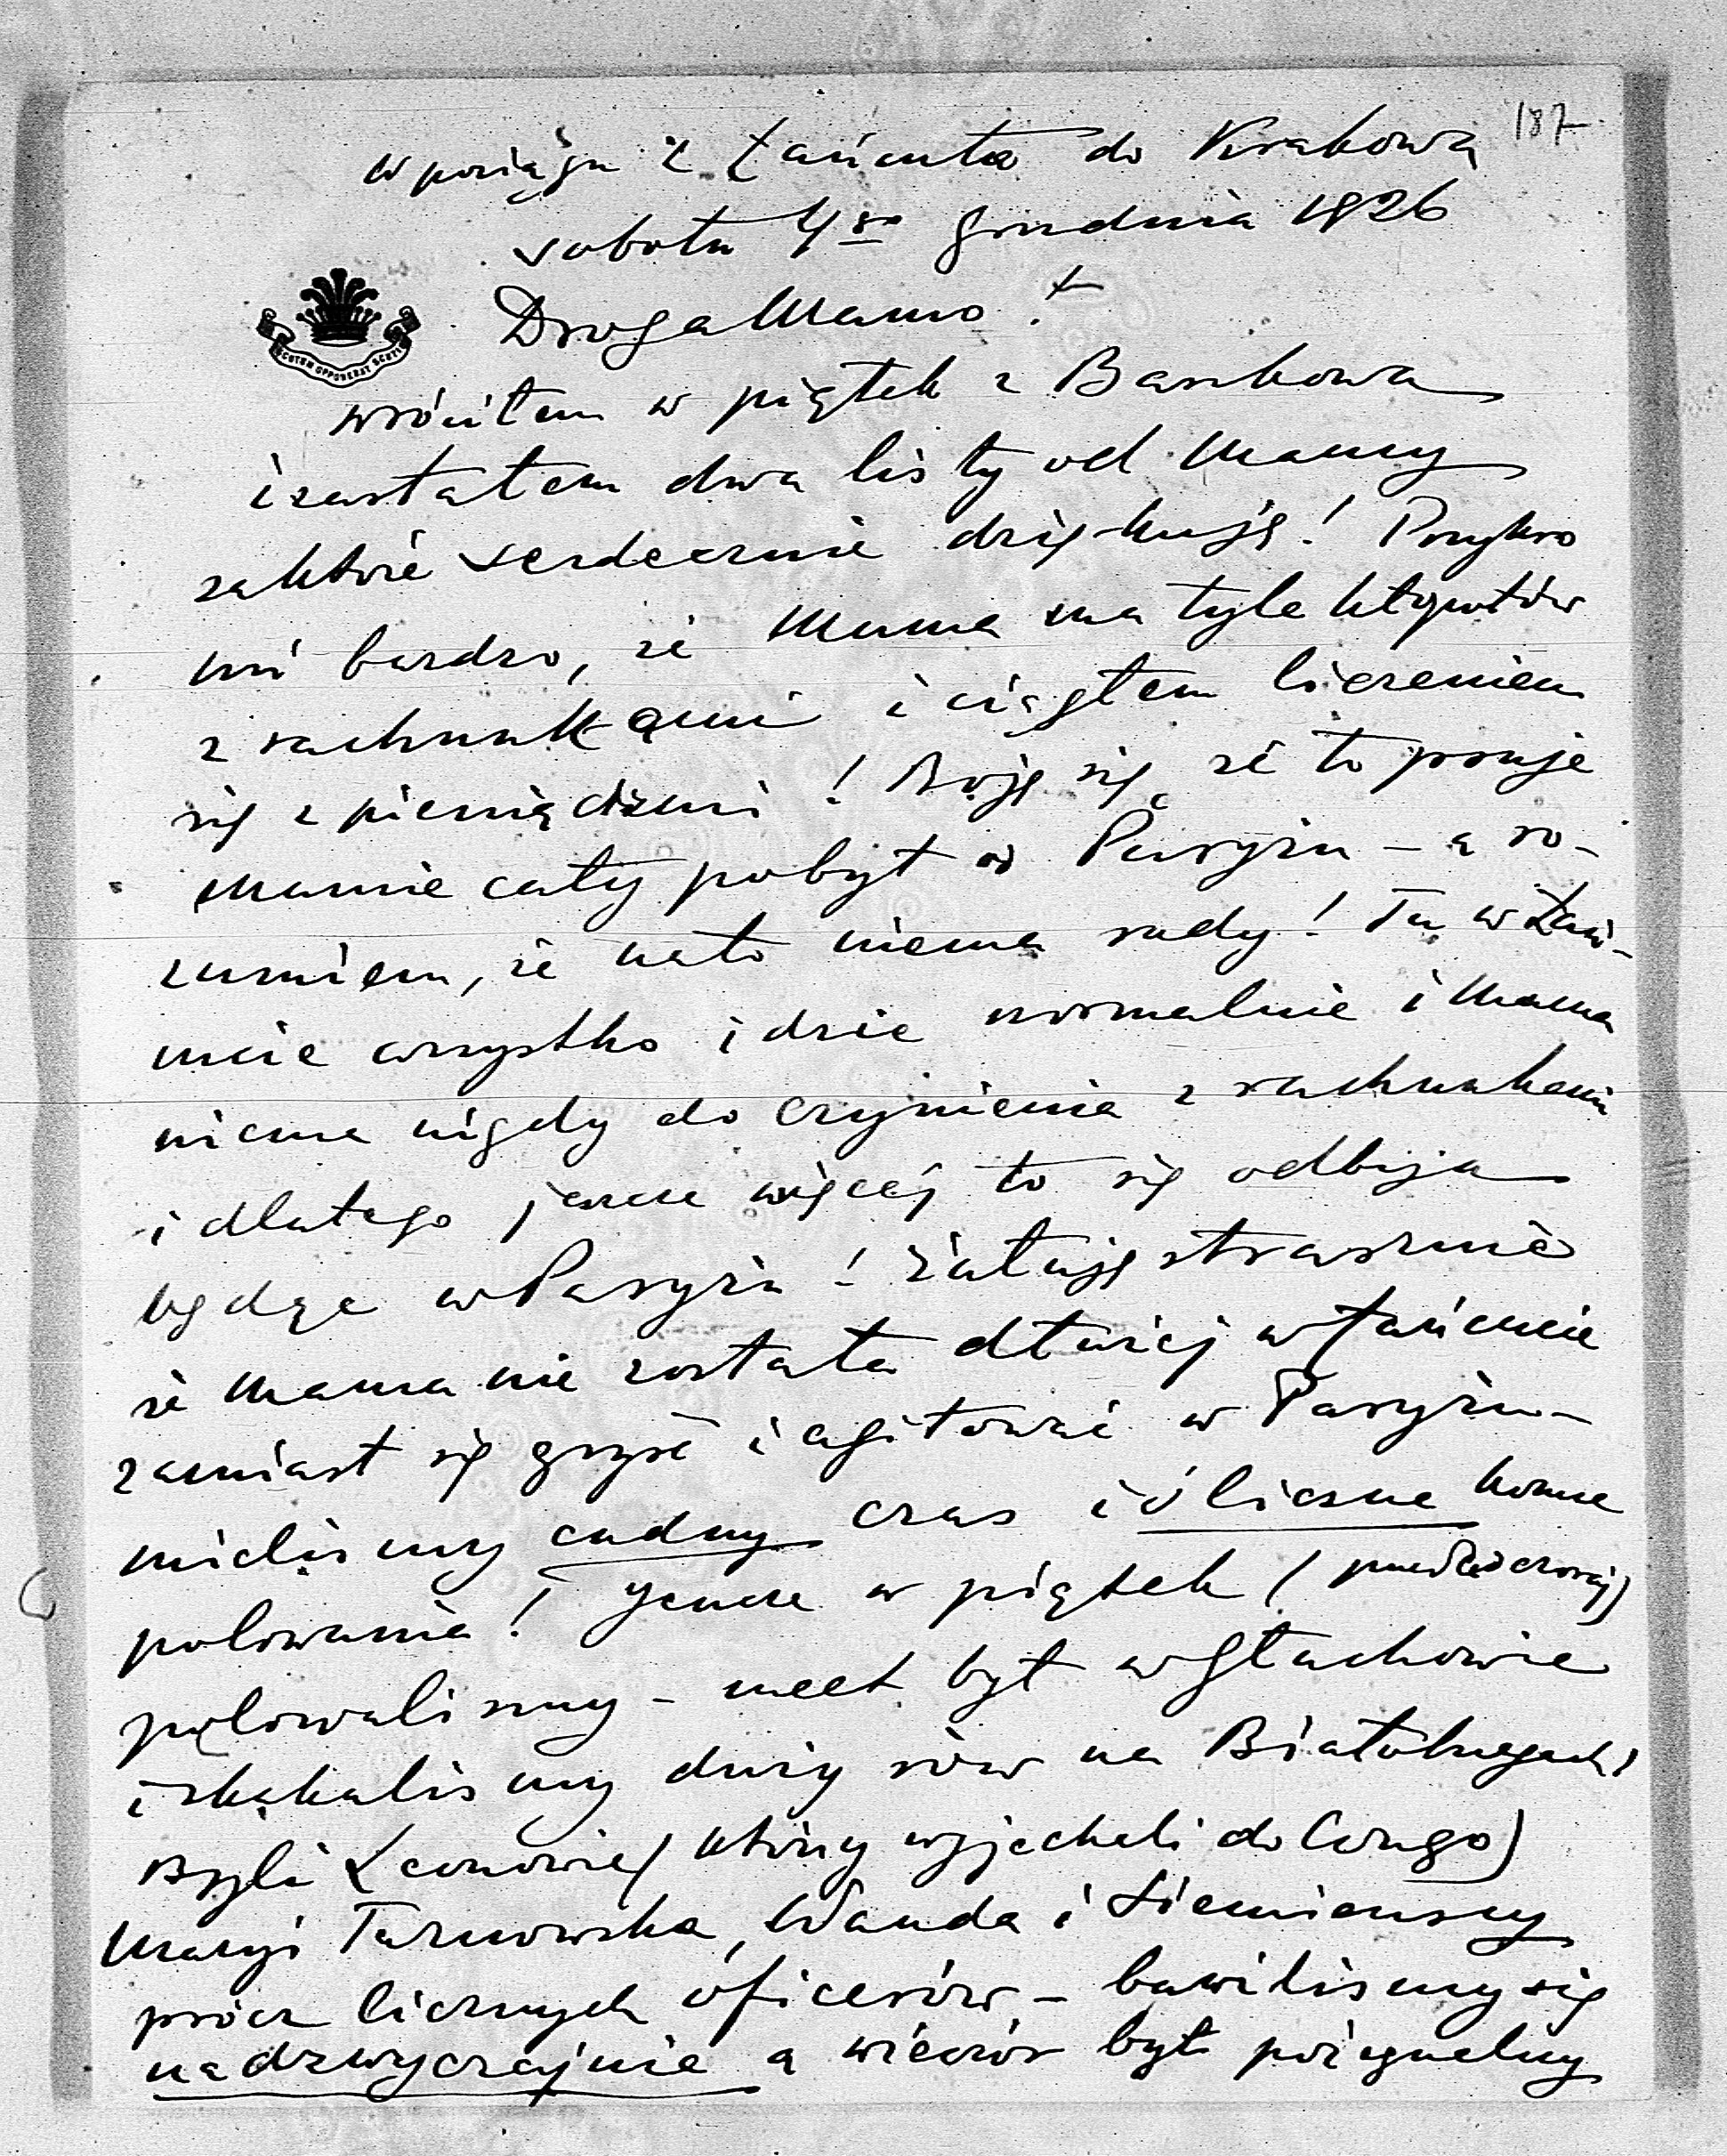 187
w pociągu z Łańcuta do Krakowa
sobota 4go grudnia 1926
SCUTUM OPPONEBAT SCUTIS
Droga Mamo!
wróciłem w piątek z Baszkowa
i zastałem dwa listy od Mamy
za które serdecznie dziękuję! Przykro
mi bardzo, że Mama ma tyle kłopotów
z rachunkami i ciągłem liczeniem
się z pieniędzmi! Boję się że to psuje
Mamie cały pobyt w Paryżu – a ro-
zumiem, że na to niema rady! Tu w Łań-
cucie wszystko idzie normalnie i Mama
niema nigdy do czynienia z rachunkami
i dlatego jeszcze więcej to się odbija
będąc w Paryżu! Żałuję strasznie
że Mama nie została dłużej w Łańcucie
zamiast się gryść i agitować w Paryżu –
mieliśmy cudny czas i śliczne konne
polowania! Jeszcze w piątek (przedwczoraj)
polowaliśmy – meet był w Głuchowie
i skakaliśmy duży rów na Białobrzegach!
Byli Leonowie (którzy wyjechali do Congo)
Maryi Tarnowska, Wanda i Siemieńscy
prócz licznych oficerów – bawiliśmy się
nadzwyczajnie a wieczór był pożegnalny